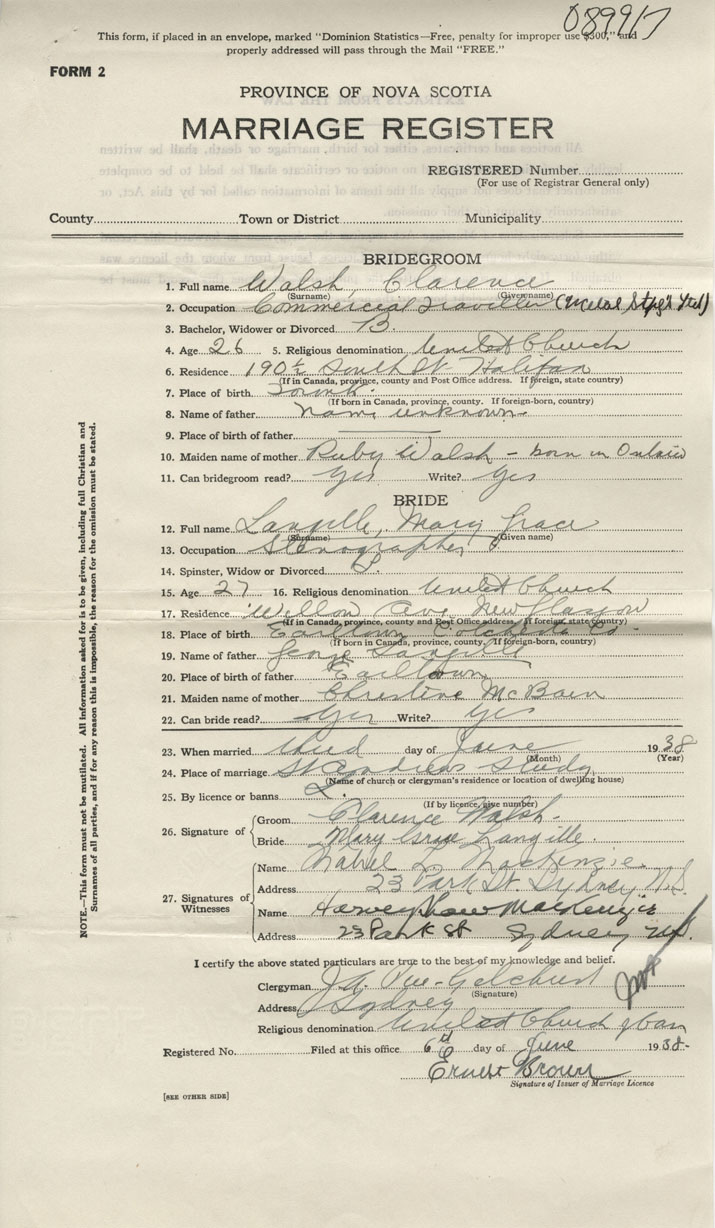 089917
This form, if placed in an envelope, marked "Dominion Statistics—Free, penalty for improper use $300," and
properly addressed will pass through the Mail "FREE."
FORM 2
PROVINCE OF NOVA SCOTIA
MARRIAGE REGISTER
REGISTERED Number
(For use of Registrar General only)
County Town or District Municipality
BRIDEGROOM
1. Full name Walsh, Clarence
(Surname) (Given name)
2. Occupation Commercial Traveller (Metal Stpg's Ltd)
3. Bachelor, Widower or Divorced B.
4. Age 26 5. Religious denomination United Church
6. Residence 190½ South St. Halifax
(If in Canada, province, county and Post Office address. If foreign, state country)
7. Place of birth
(If born in Canada, province, county. If foreign-born, country)
8. Name of father name unknown
9. Place of birth of father
10. Maiden name of mother Ruby Walsh - born in Ontario
11. Can bridegroom read? Yes Write? Yes
BRIDE
12. Full name Langille, Mary Grace
(Surname) (Given name)
13. Occupation Stenographer
14. Spinster, Widow or Divorced S.
15. Age 27 16. Religious denomination United Church
17. Residence Willow Ave, New Glasgow
(If in Canada, province, county and Post Office address. If foreign, state country)
18. Place of birth Earltown Colchester Co.
(If born in Canada, province, county. If foreign-born, country)
19. Name of father George Langille
20. Place of birth of father Earltown
21. Maiden name of mother Christine McBain
22. Can bride read? Yes Write? Yes
23. When married third day of June 1938
(Month) (Year)
24. Place of marriage St Andrews Study
(Name of church or clergyman's residence or location of dwelling house)
25. By licence or banns L.
(If by licence, give number)
26. Signature of Groom Clarence Walsh.
Bride Mary Grace Langille.
27. Signatures of Witnesses
Name Mabel L. MacKenzie.
Address 23 Park St. Sydney, N.S.
Name Harvey Shaw MacKenzie
Address 23 Park St Sydney N.S.
I certify the above stated particulars are true to the best of my knowledge and belief.
Clergyman J.A. Pue-Gilchrist
(Signature)
Address Sydney
Religious denomination United Church of Can
Registered No. Filed at this office 6th day of June 1938-
Ernest Brown
Signature of Issuer of Marriage Licence
[SEE OTHER SIDE]
NOTE.—This form must not be mutilated. All information asked for is to be given, including full Christian and
Surnames of all parties, and if for any reason this is impossible, the reason for the omission must be stated.